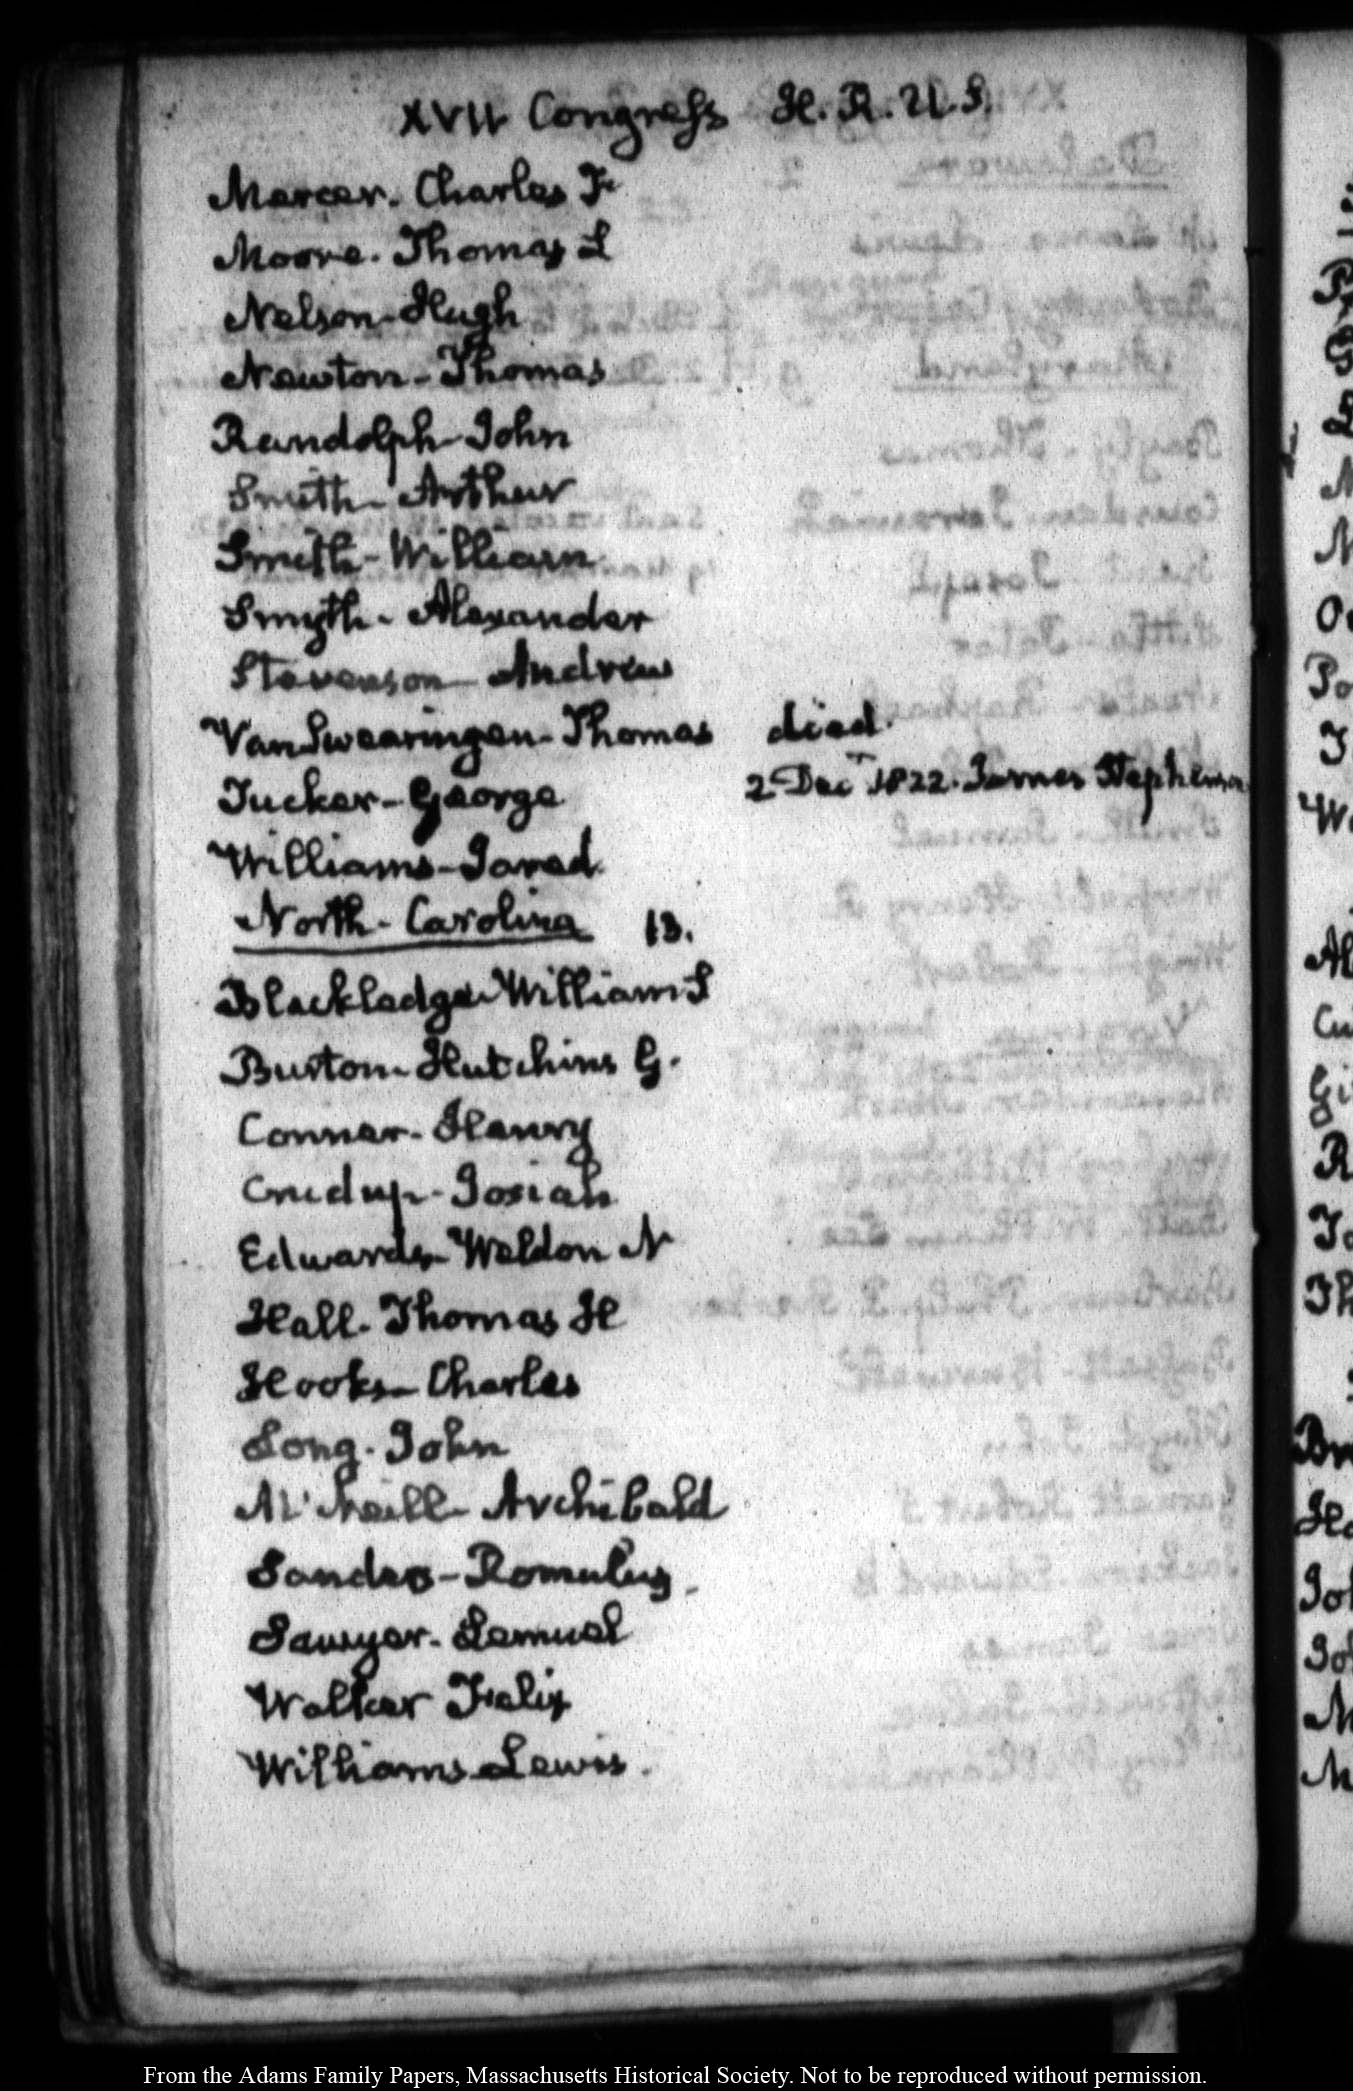 XVII Congress H. R. U. S.
Mercer. Charles F
Moore. Thomas L
Nelson-Hugh
Newton-Thomas
Randolph-John
Smith-Arthur
Smith-William
Smyth-Alexander
Stevenson-Andrew
VanSwearingen-Thomas died.
Tucker-George 2 Decr 1822. James Stephenson
Williams-Jared
North-Carolina 13.
Blackledge William S
Burton-Hutchins G.
Conner-Henry
Crudup-Josiah
Edwards-Weldon N
Hall-Thomas H
Hooks-Charles
Long-John
McNeill-Archibald
Sanders-Romulus
Sawyer-Lemuel
Walker Felix
Williams-Lewis.
From the Adams Family Papers, Massachusetts Historical Society. Not to be reproduced without permission.